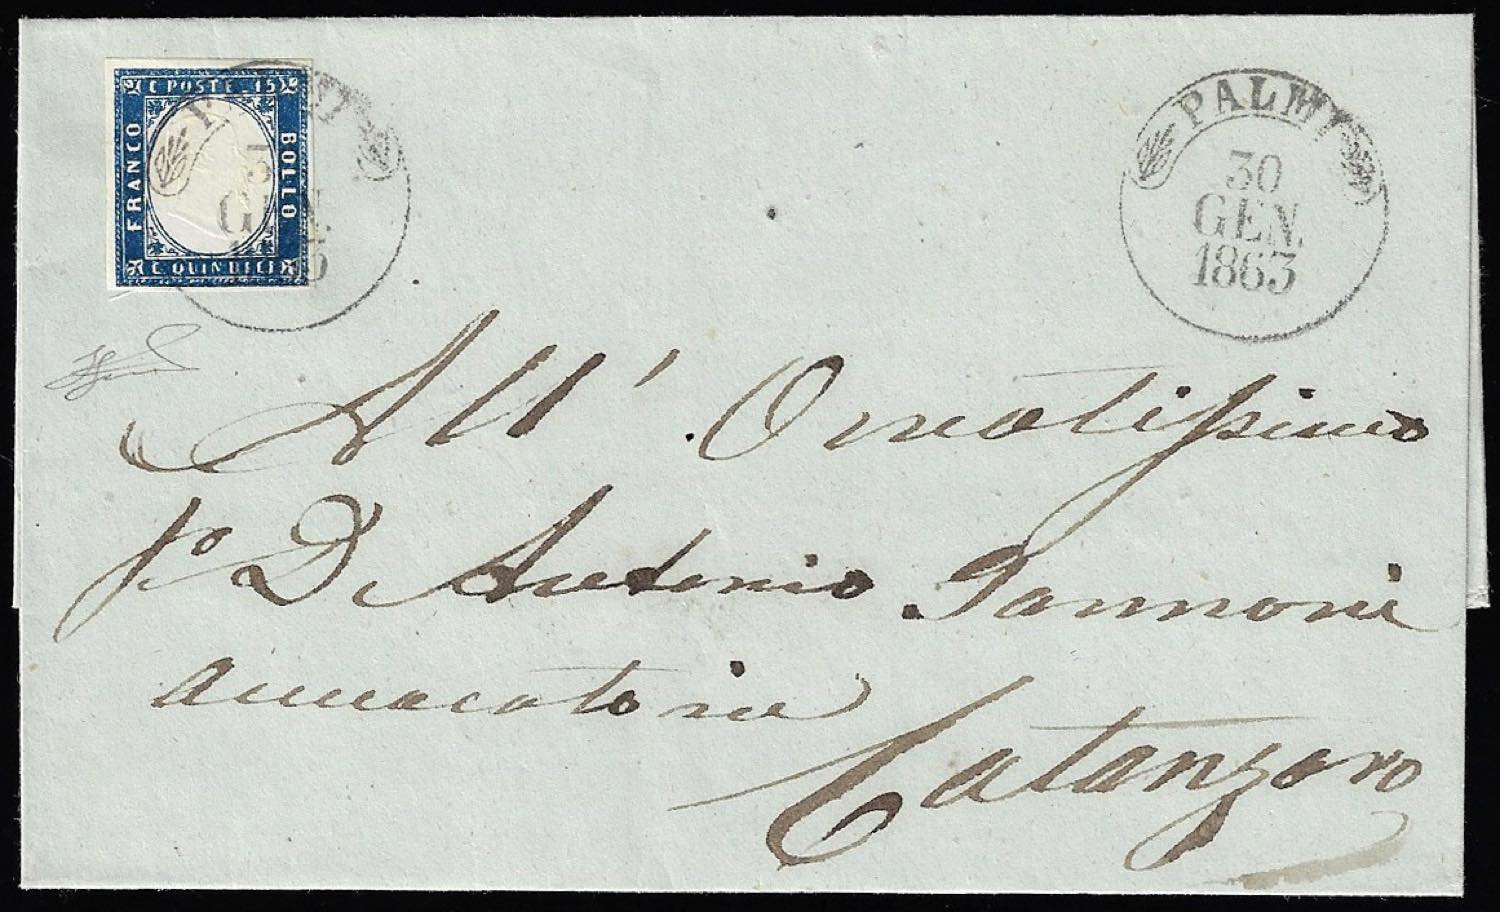 C POSTE 15
FRANCO
BOLLO
C QUINDICI
GEN.
PALMI
30
GEN.
1863
All' Ornatissimo
D. Antonio Jannoni
Catanzaro